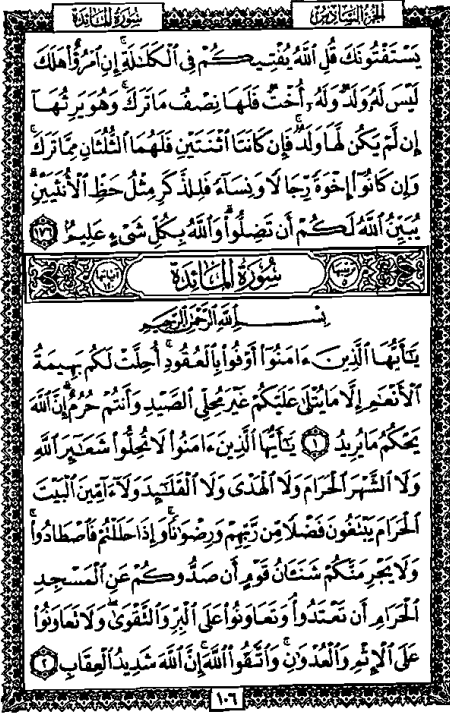 سُورَةُ المَائدَة
الجزء السَّادس
يَسْتَفْتُونَكَ قُلِ ٱللَّهُ يُفْتِيكُمْ فِى ٱلْكَلَٰلَةِ ۚ إِنِ ٱمْرُؤٌا۟ هَلَكَ
لَيْسَ لَهُۥ وَلَدٌ وَلَهُۥٓ أُخْتٌ فَلَهَا نِصْفُ مَا تَرَكَ ۚ وَهُوَ يَرِثُهَآ
إِن لَّمْ يَكُن لَّهَا وَلَدٌ ۚ فَإِن كَانَتَا ٱثْنَتَيْنِ فَلَهُمَا ٱلثُّلُثَانِ مِمَّا تَرَكَ ۚ
وَإِن كَانُوٓا۟ إِخْوَةً رِّجَالًا وَنِسَآءً فَلِلذَّكَرِ مِثْلُ حَظِّ ٱلْأُنثَيَيْنِ ۗ
يُبَيِّنُ ٱللَّهُ لَكُمْ أَن تَضِلُّوا۟ ۗ وَٱللَّهُ بِكُلِّ شَىْءٍ عَلِيمٌۢ ١٧٦
ترتيبها ٥
سُورَةُ المَائدَة
آياتها ١٢٠
بِسْمِ ٱللَّهِ ٱلرَّحْمَٰنِ ٱلرَّحِيمِ
يَٰٓأَيُّهَا ٱلَّذِينَ ءَامَنُوٓا۟ أَوْفُوا۟ بِٱلْعُقُودِ ۚ أُحِلَّتْ لَكُم بَهِيمَةُ
ٱلْأَنْعَٰمِ إِلَّا مَا يُتْلَىٰ عَلَيْكُمْ غَيْرَ مُحِلِّى ٱلصَّيْدِ وَأَنتُمْ حُرُمٌ ۗ إِنَّ ٱللَّهَ
يَحْكُمُ مَا يُرِيدُ ١ يَٰٓأَيُّهَا ٱلَّذِينَ ءَامَنُوا۟ لَا تُحِلُّوا۟ شَعَٰٓئِرَ ٱللَّهِ
وَلَا ٱلشَّهْرَ ٱلْحَرَامَ وَلَا ٱلْهَدْىَ وَلَا ٱلْقَلَٰٓئِدَ وَلَآ ءَآمِّينَ ٱلْبَيْتَ
ٱلْحَرَامَ يَبْتَغُونَ فَضْلًا مِّن رَّبِّهِمْ وَرِضْوَٰنًا ۚ وَإِذَا حَلَلْتُمْ فَٱصْطَادُوا۟ ۚ
وَلَا يَجْرِمَنَّكُمْ شَنَـَٔانُ قَوْمٍ أَن صَدُّوكُمْ عَنِ ٱلْمَسْجِدِ
ٱلْحَرَامِ أَن تَعْتَدُوا۟ ۘ وَتَعَاوَنُوا۟ عَلَى ٱلْبِرِّ وَٱلتَّقْوَىٰ ۖ وَلَا تَعَاوَنُوا۟
عَلَى ٱلْإِثْمِ وَٱلْعُدْوَٰنِ ۚ وَٱتَّقُوا۟ ٱللَّهَ ۖ إِنَّ ٱللَّهَ شَدِيدُ ٱلْعِقَابِ ٢
١٠٦